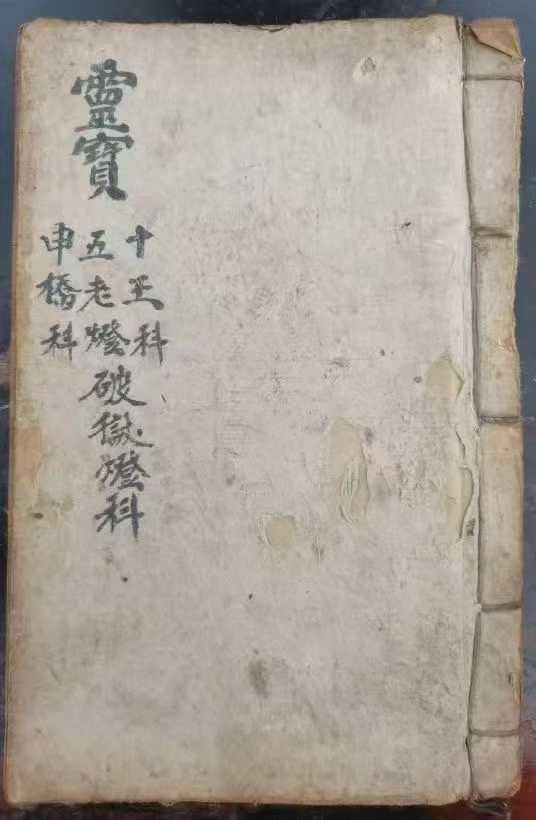 靈寶
十王科
五老燈破獄燈科
申橋科